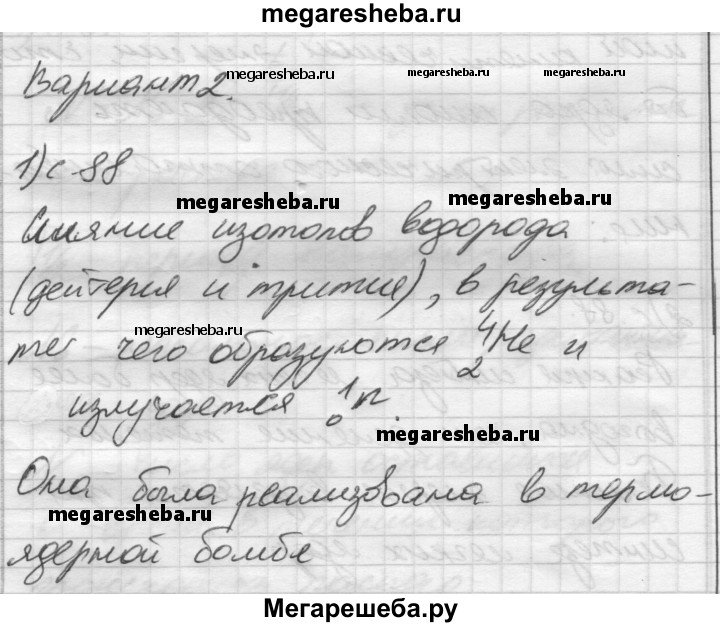 megaresheba.ru
Вариант 2.
megaresheba.ru
megaresheba.ru
megaresheba.ru
1) с 88
megaresheba.ru
megaresheba.ru
Слияние изотопов водорода
(дейтерия и трития), в результа-
megaresheba.ru
те чего образуются ⁴₂He и
излучается ¹₀n.
megaresheba.ru
Она была реализована в термо-
megaresheba.ru
ядерной бомбе
Мегарешеба.ру